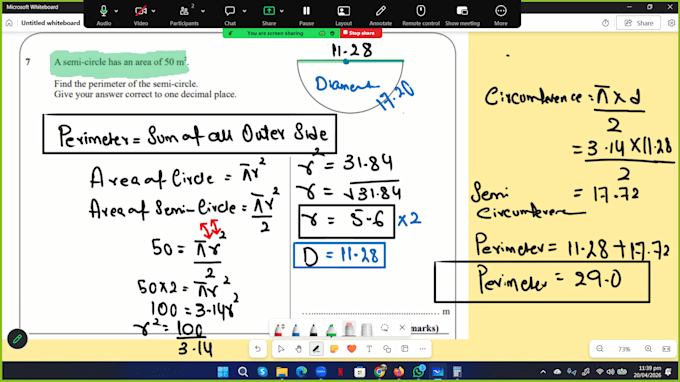 Microsoft Whiteboard
Audio
Video
Participants
2
Chat
Share
Pause
Layout
Annotate
Remote control
Show meeting
More
Untitled whiteboard
You are screen sharing
Stop share
Share
7
A semi-circle has an area of 50 m².
Find the perimeter of the semi-circle.
Give your answer correct to one decimal place.
11.28
Diameter
17.20
Perimeter = Sum of all Outer Side
Area of Circle = πr²
Area of Semi-Circle = πr²/2
50 = πr²/2
50×2 = πr²
100 = 3.14r²
r² = 100/3.14
r² = 31.84
r = √31.84
r = 5.6 ×2
D = 11.28
m
marks)
Circumference = π×d/2
= 3.14×11.28/2
Semi Circumference = 17.72
Perimeter = 11.28+17.72
Perimeter = 29.0
73%
11:39 pm
20/04/2026